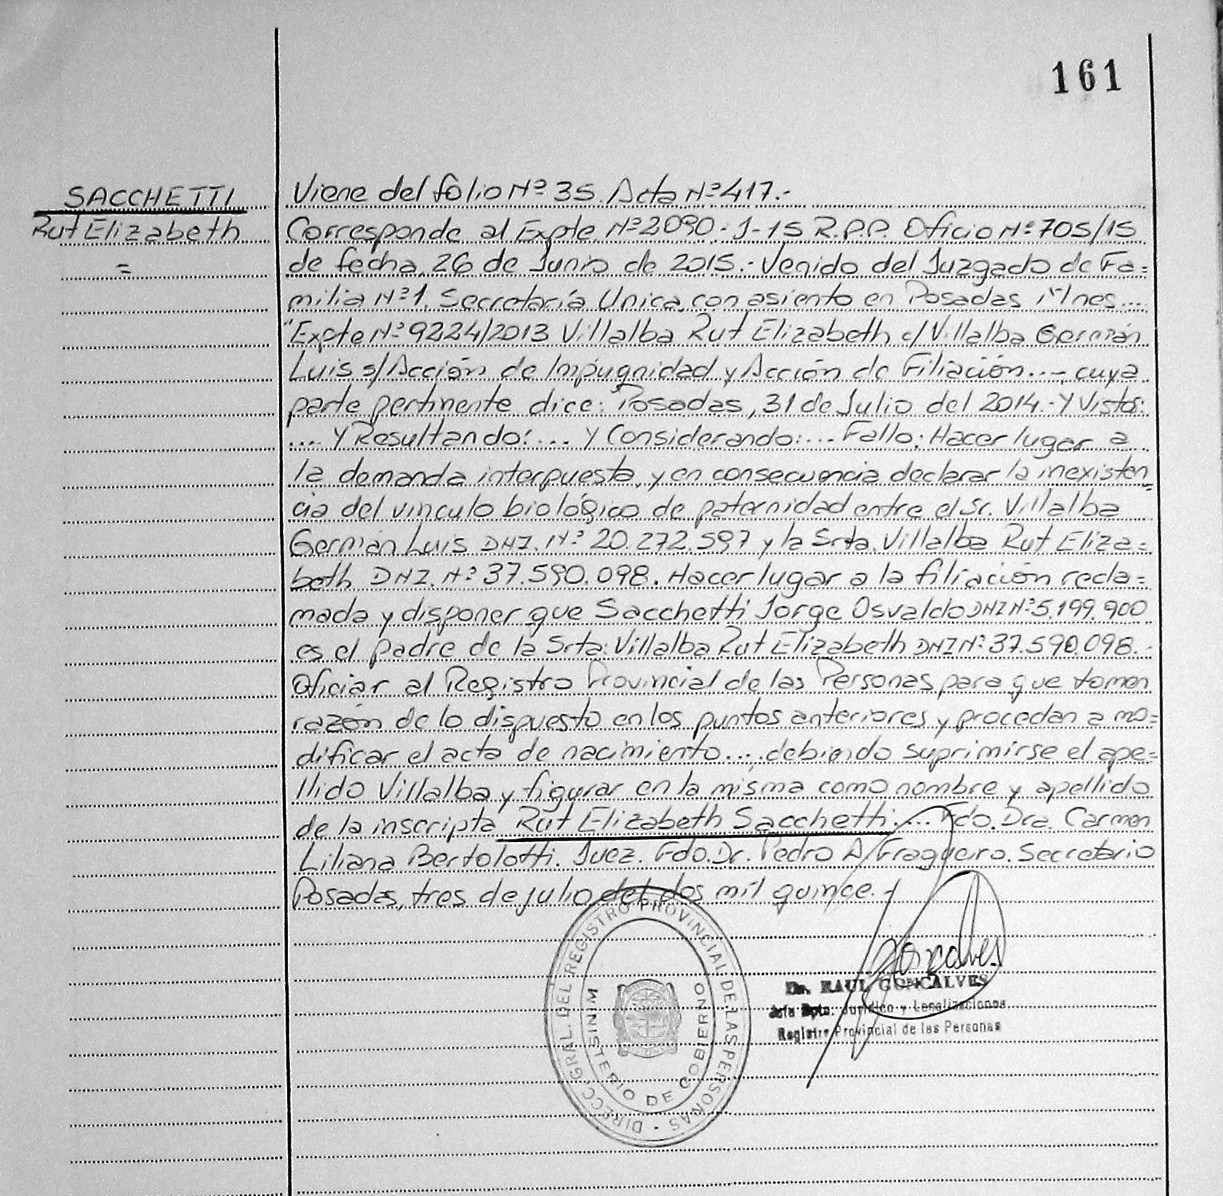 161
SACCHETTI
Rut Elizabeth
=
Viene del folio Nº 35. Acta Nº 417.-
Corresponde al Expte. Nº 2090-J-15 R.P.P. Oficio Nº 705/15
de fecha, 26 de Junio de 2015.- Venido del Juzgado de Fa=
milia Nº 1. Secretaría Unica, con asiento en Posadas Mnes...
"Expte Nº 9224/2013 Villalba Rut Elizabeth c/Villalba Germán
Luis s/Acción de Impugnidad y Acción de Filiación..., cuya
parte pertinente dice: Posadas, 31 de Julio del 2014.- Y Vistos:
.... Y Resultando:.... Y Considerando:... Fallo: Hacer lugar a
la demanda interpuesta, y en consecuencia declarar la inexisten=
cia del vinculo biológico de paternidad entre el Sr. Villalba
Germán Luis DNI. Nº 20.272.597 y la Srta. Villalba Rut Eliza=
beth DNI. Nº 37.590.098. Hacer lugar a la filiación recla=
mada y disponer que Sacchetti Jorge Osvaldo DNI Nº 5.199.900
es el padre de la Srta: Villalba Rut Elizabeth DNI Nº 37.590.098.-
Oficiar al Registro Provincial de las Personas para que tomen
razón de lo dispuesto en los puntos anteriores y procedan a mo=
dificar el acta de nacimiento..., debiendo suprimirse el ape=
llido Villalba y figurar en la misma como nombre y apellido
de la inscripta Rut Elizabeth Sacchetti.... Fdo. Dra. Carmen
Liliana Bertolotti. Juez. Fdo. Dr. Pedro A. Fragueiro. Secretario
Posadas, tres de julio del dos mil quince.-
DIRECC. GRAL. DEL REGISTRO PROVINCIAL DE LAS PERSONAS -
MINISTERIO DE GOBIERNO
Goncalves
Dr. RAUL GONCALVES
Jefe Dpto. Jurídico y Legalizaciones
Registro Provincial de las Personas